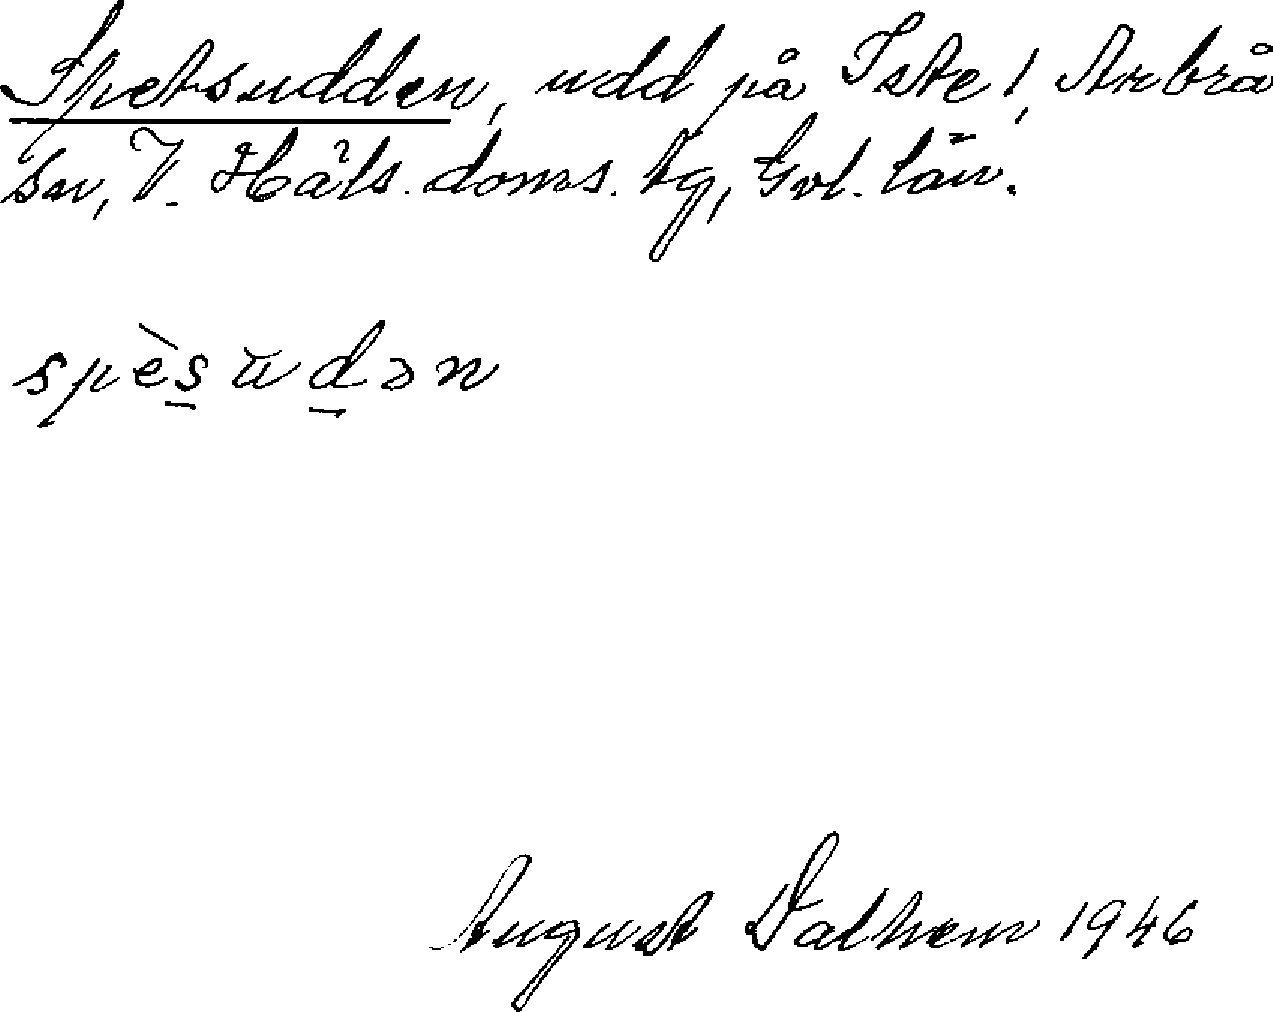 Spetsudden, udd på Iste!, Arbrå
sn, V. Häls. doms. tg, Gvl. län.
spès̲ŭd̲ən
August Dalhem 1946